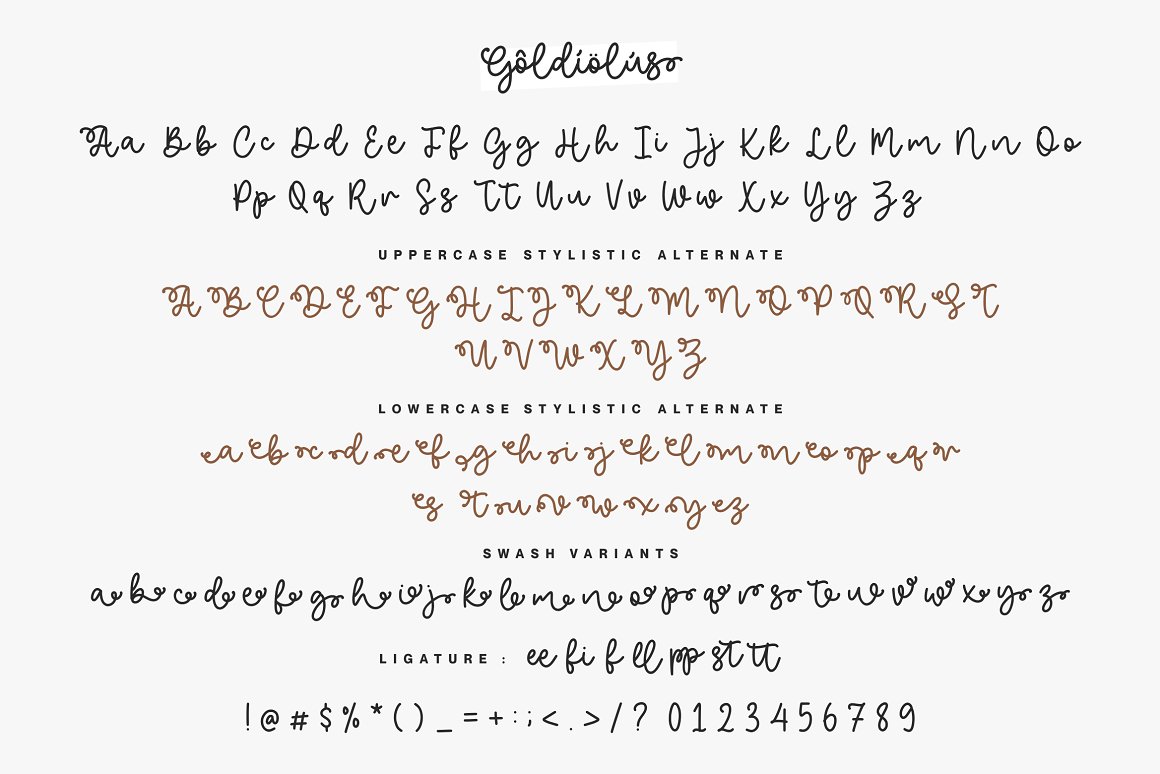 Gôldíölús
Aa Bb Cc Dd Ee Ff Gg Hh Ii Jj Kk Ll Mm Nn Oo
Pp Qq Rr Ss Tt Uu Vv Ww Xx Yy Zz
UPPERCASE STYLISTIC ALTERNATE
A B C D E F G H I J K L M N O P Q R S T
U V W X Y Z
LOWERCASE STYLISTIC ALTERNATE
a b c d e f g h i j k l m n o p q r
s t u v w x y z
SWASH VARIANTS
a b c d e f g h i j k l m n o p q r s t u v w x y z
LIGATURE : ee fi f ll pp st tt
! @ # $ % * ( ) _ = + : ; < . > / ? 0 1 2 3 4 5 6 7 8 9